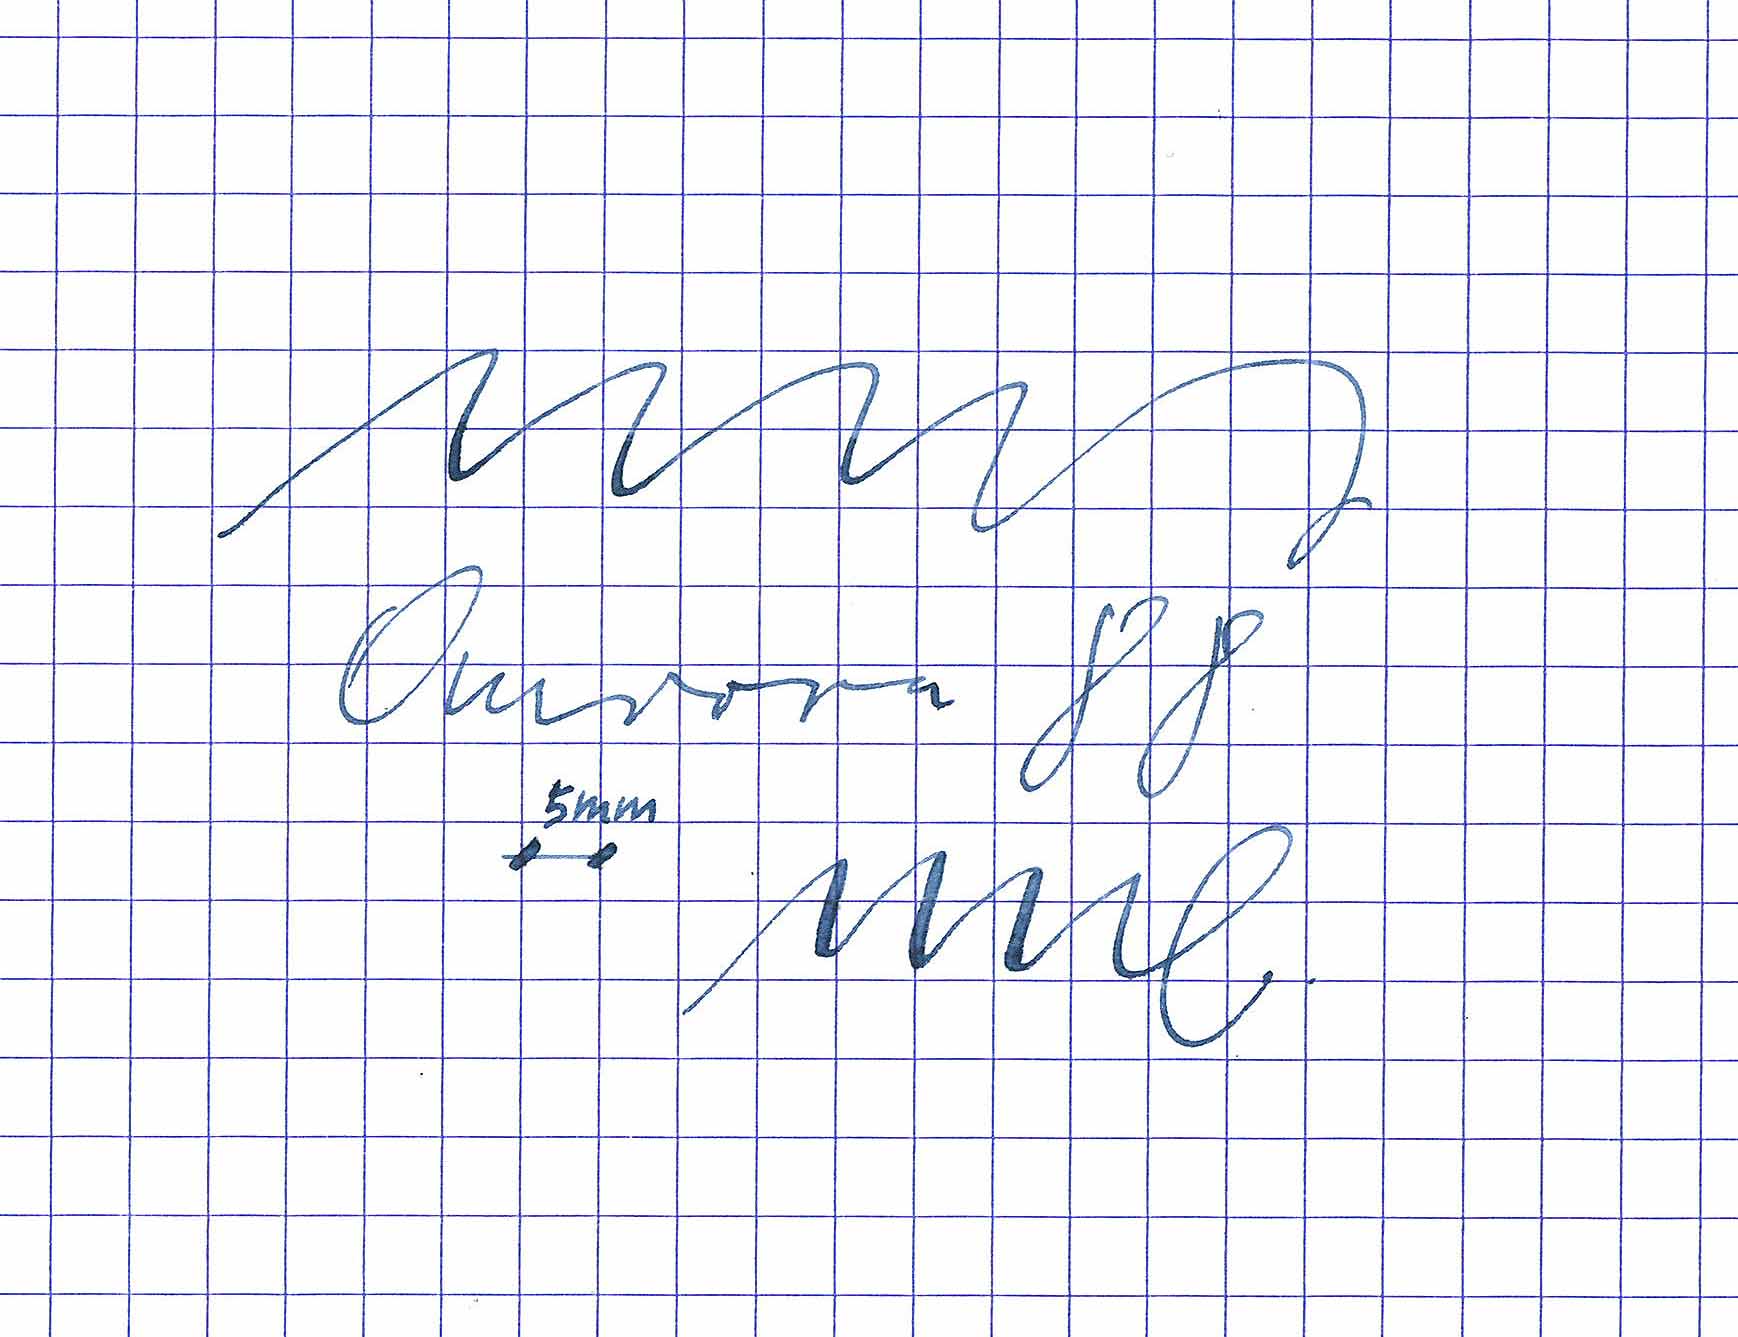 Aurora 88
5mm